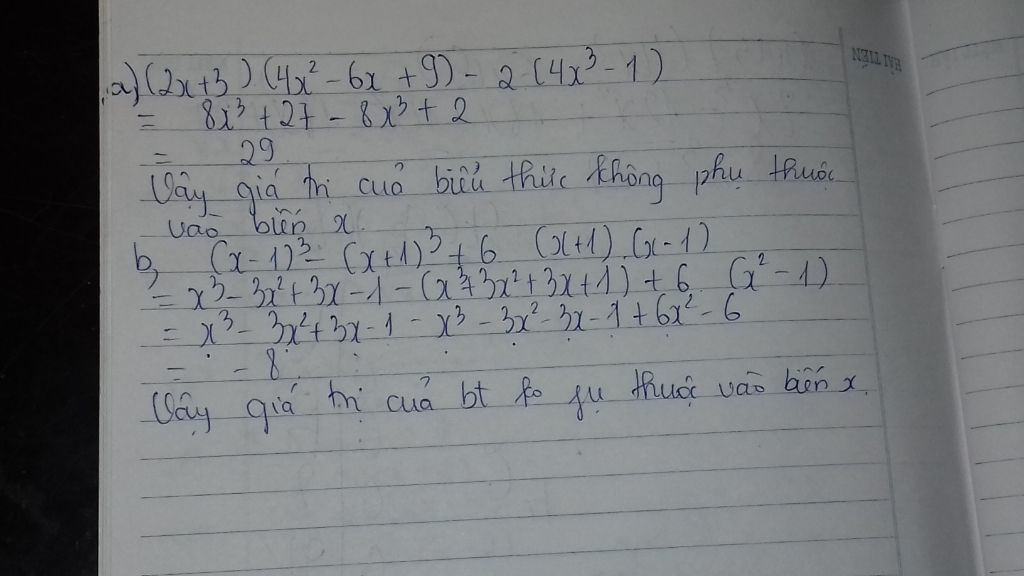 a) (2x+3).(4x² - 6x + 9) - 2 (4x³ - 1)
= 8x³ + 27 - 8x³ + 2
= 29
Vậy giá trị cuả biểu thức không phụ thuộc
vào biến x.
b, (x-1)³ - (x+1)³ + 6 (x+1).(x-1)
= x³ - 3x² + 3x - 1 - (x³ + 3x² + 3x + 1) + 6 (x² - 1)
= x³ - 3x² + 3x - 1 - x³ - 3x² - 3x - 1 + 6x² - 6
= - 8.
Vậy giá trị cuả bt ko fụ thuộc vào biến x.
HẢI TIẾN